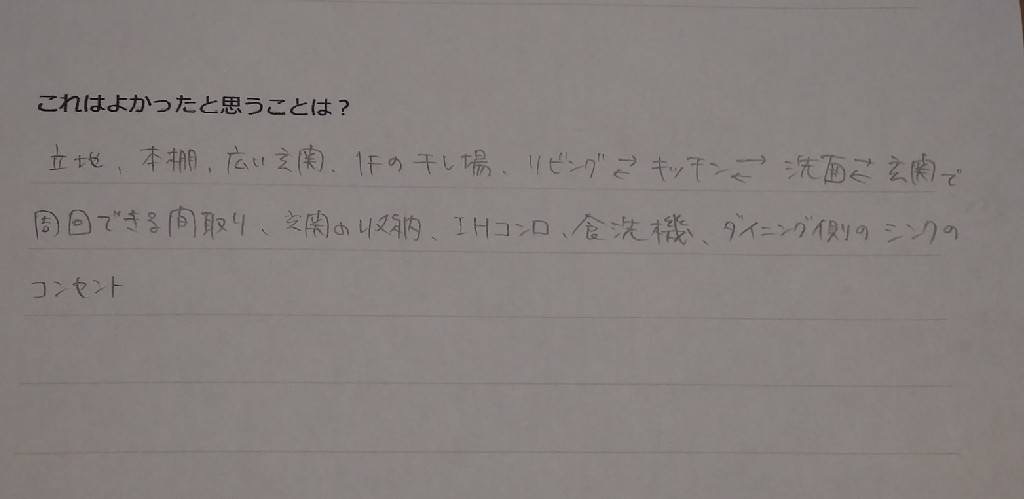 これはよかったと思うことは？
立地、本棚、広い玄関、1Fの干し場、リビング⇄キッチン⇄洗面⇄玄関で
周回できる間取り、玄関の収納、IHコンロ、食洗機、ダイニング側のシンクの
コンセント